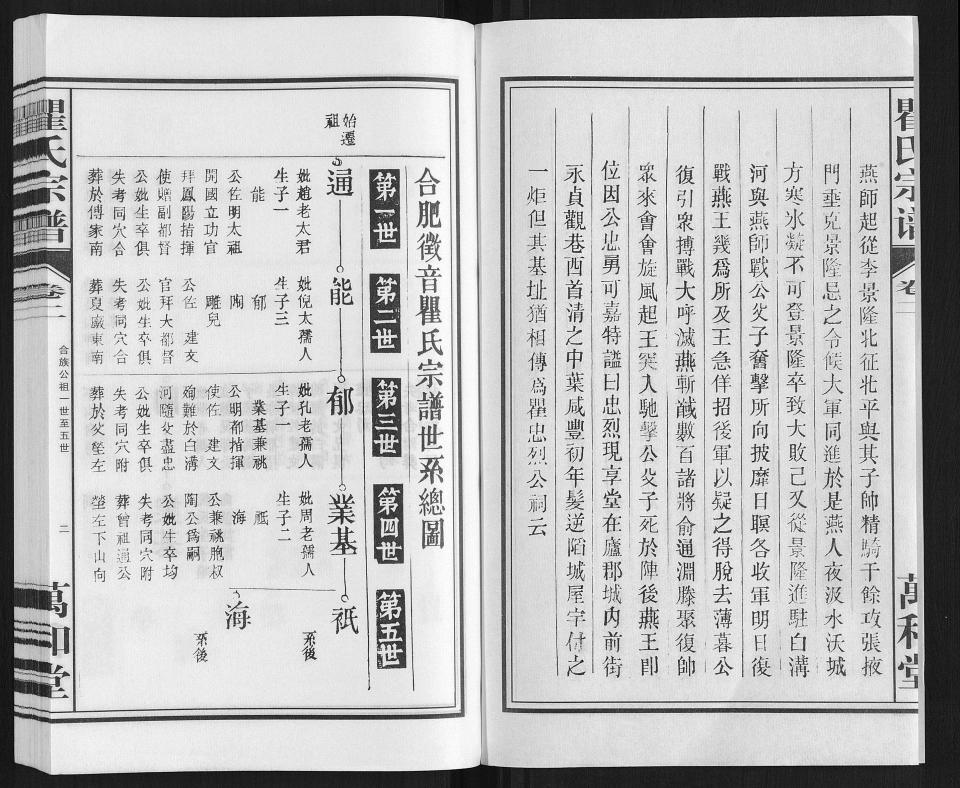 燕師起從李景隆北征北平與其子帥精騎千餘攻張掖
門垂克景隆忌之令候大軍同進於是燕人夜汲水沃城
方寒冰凝不可登景隆卒致大敗已又從景隆進駐白溝
河與燕師戰公父子奮擊所向披靡日暝各收軍明日復
戰燕王幾爲所及王急佯招後軍以疑之得脫去薄暮公
復引衆搏戰大呼滅燕斬馘數百諸將俞通淵滕聚復帥
衆來會會旋風起王突入馳擊公父子死於陣後燕王即
位因公忠勇可嘉特謚曰忠烈現享堂在廬郡城內前街
永貞觀巷西首清之中葉咸豐初年髮逆陷城屋宇付之
一炬但其基址猶相傳爲瞿忠烈公祠云
瞿氏宗谱
卷二
萬和堂
合肥徵音瞿氏宗譜世系總圖
第一世
第二世
第三世
第四世
第五世
始遷
祖
通
能
郁
業基
祇
海
系後
系後
妣趙老太君
生子一
能
公佐明太祖
開國立功官
拜鳳陽指揮
使贈副都督
公妣生卒俱
失考同穴合
葬於傅家南
妣倪太孺人
生子三
郁
陶
雕兒
公佐 建文
官拜大都督
公妣生卒俱
失考同穴合
葬夏廠東南
妣孔老孺人
生子一
業基兼祧
公明都指揮
使佐 建文
殉難於白溝
河隨父盡忠
公妣生卒俱
失考同穴附
葬於父塋左
妣周老孺人
生子二
祇
海
公兼祧胞叔
陶公爲嗣
公妣生卒均
失考同穴附
葬曾祖通公
塋左下山向
瞿氏宗譜
卷二
合族公祖一世至五世
二
萬和堂